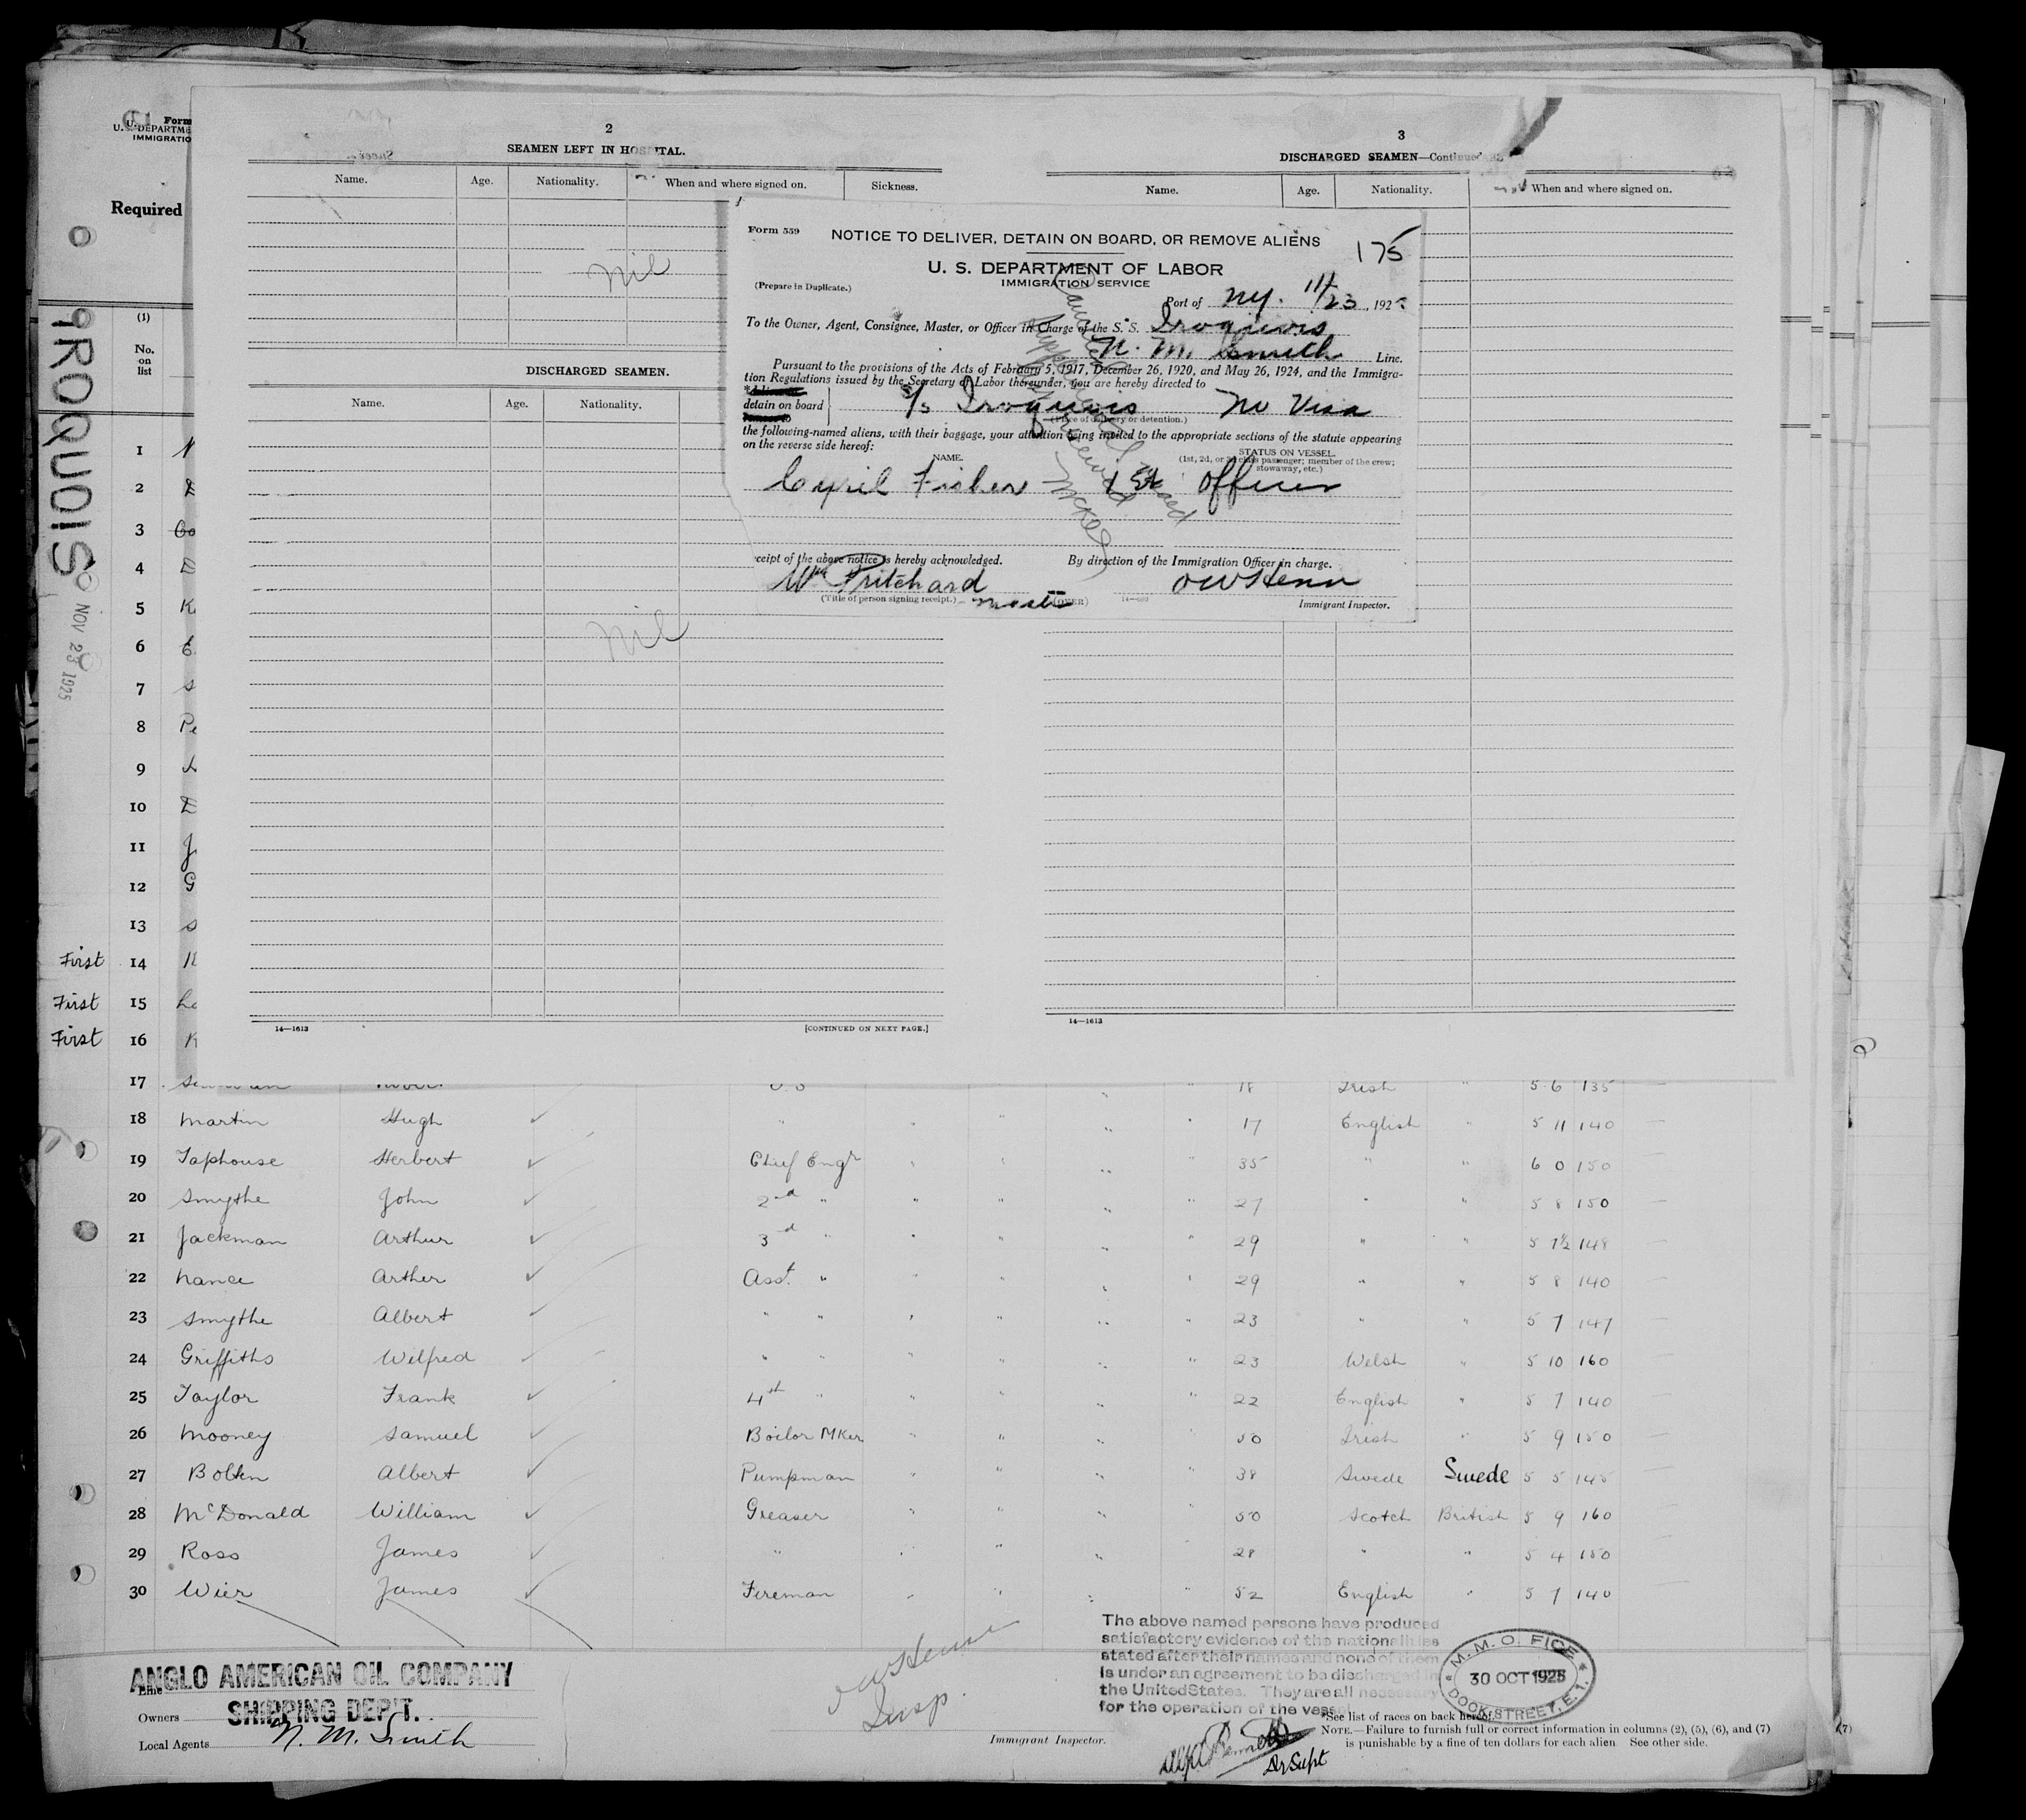 Form
U. S. DEPARTME
IMMIGRATIO
Required
IROQUOIS
NOV 23 1925
(1)
No.
on
list
2
SEAMEN LEFT IN HOSPITAL.
Name. Age. Nationality. When and where signed on. Sickness.
Nil
DISCHARGED SEAMEN.
Name. Age. Nationality.
Nil
14—1613 [CONTINUED ON NEXT PAGE.]
3
DISCHARGED SEAMEN—Continued
Name. Age. Nationality. When and where signed on.
14—1613
Form 559
NOTICE TO DELIVER, DETAIN ON BOARD, OR REMOVE ALIENS 175
U. S. DEPARTMENT OF LABOR
IMMIGRATION SERVICE
(Prepare in Duplicate.)
Port of NY. 11/23, 192
To the Owner, Agent, Consignee, Master, or Officer in Charge of the S. S. Iroquois
N. M. Smith Line.
Pursuant to the provisions of the Acts of February 5, 1917, December 26, 1920, and May 26, 1924, and the Immigra-
tion Regulations issued by the Secretary of Labor thereunder, you are hereby directed to
detain on board S/S Iroquois No Visa
(Place of delivery or detention.)
the following-named aliens, with their baggage, your attention being invited to the appropriate sections of the statute appearing
on the reverse side hereof:
NAME. STATUS ON VESSEL.
(1st, 2d, or 3d class passenger; member of the crew;
stowaway, etc.)
Cyril Fisher 1st Officer
ceipt of the above notice is hereby acknowledged. By direction of the Immigration Officer in charge.
Wm Pritchard OW Henn
(Title of person signing receipt.) Master (OVER) Immigrant Inspector.
1
2
3
4
5
6
7
8
9
10
11
12
13
First 14
First 15
First 16
17 18 Irish " 5 6 135
18 Martin Hugh ✓ " " " " " 17 English " 5 11 140
19 Taphouse Herbert ✓ Chief Engr " " " " 35 " " 6 0 150
20 Smythe John ✓ 2nd " " " " " 27 " " 5 8 150
21 Jackman Arthur ✓ 3d " " " " " 29 " " 5 7½ 148
22 Nance Arther ✓ Asst. " " " " " 29 " " 5 8 140
23 Smythe Albert ✓ " " " " " " 23 " " 5 7 147
24 Griffiths Wilfred ✓ " " " " " " 23 Welsh " 5 10 160
25 Taylor Frank ✓ 4th " " " " " 22 English " 5 7 140
26 Mooney Samuel ✓ Boilor MKer " " " " 50 Irish " 5 9 150
27 Albert ✓ Pumpman " " " " 38 Swede Swede 5 5 145
28 McDonald William ✓ Greaser " " " " 50 Scotch British 5 9 160
29 Ross James ✓ " " " " " 28 " " 5 4 150
30 Wier James ✓ Fireman " " " " 52 English " 5 7 140
ANGLO AMERICAN OIL COMPANY
Line
SHIPPING DEP'T.
Owners
Local Agents N. M. Smith
OW Henn
Insp.
Immigrant Inspector.
The above named persons have produced
satisfactory evidence of the nationalities
stated after their names and none of them
is under an agreement to be discharged in
the United States. They are all necessary
for the operation of the vess
Dr Supt
M. M. OFFICE
30 OCT 1925
DOCK STREET, E. 1.
*See list of races on back hereof.
NOTE.—Failure to furnish full or correct information in columns (2), (5), (6), and (7)
is punishable by a fine of ten dollars for each alien. See other side.
(7)